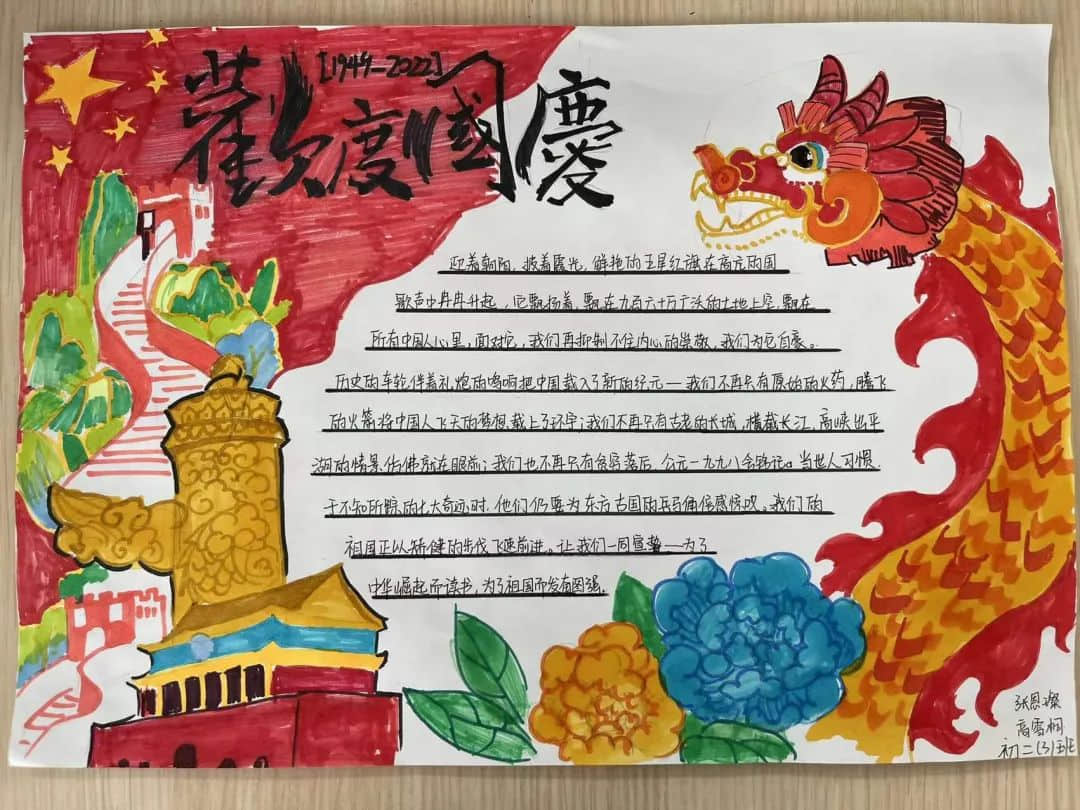 [1949-2022]
歡度國慶
迎着朝阳，披着霞光，鲜艳的五星红旗在高亢的国
歌声中冉冉升起，它飘扬着，飘在九百六十万广沃的土地上空，飘在
所有中国人心里，面对它，我们再抑制不住内心的崇敬，我们为它自豪。
历史的车轮伴着礼炮的鸣响把中国载入了新的纪元——我们不再只有原始的火药，腾飞
的火箭将中国人飞天的梦想载上了环宇；我们不再只有古老的长城，横截长江，高峡出平
湖的情景仿佛就在眼前；我们也不再只有贫穷落后，公元一九九八会铭记。当世人习惯
于不知所踪的七大奇迹时，他们仍要为东方古国的兵马俑倍感惊叹。我们的
祖国正以矫健的步伐飞速前进。让我们一同宣誓——为了
中华崛起而读书，为了祖国而发奋图强。
张恩璨
高雪桐
初二(3)班